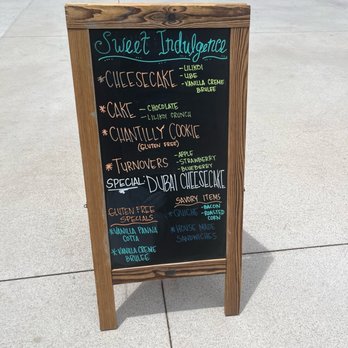 Sweet Indulgence
* CHEESECAKE - LILIKOI
- UBE
- VANILLA CREME BRULEE
* CAKE - CHOCOLATE
- LILIKOI CRUNCH
* CHANTILLY COOKIE
(GLUTEN FREE)
* TURNOVERS - APPLE
- STRAWBERRY
- BLUEBERRY
SPECIAL: DUBAI CHEESECAKE
GLUTEN FREE
SPECIALS
* VANILLA PANNA
COTTA
* VANILLA CREME
BRULEE
SAVORY ITEMS
* QUICHE - BACON
- ROASTED
CORN
* HOUSE MADE
SANDWICHES